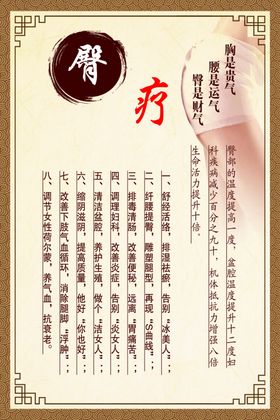 臀
疗
胸是贵气
腰是运气
臀是财气
臀部的温度提高一度，盆腔温度提升十二度妇
科疾病减少百分之九十，机体抵抗力增强八倍
生命活力提升十倍。
一、舒经活络，排湿祛瘀，告别“冰美人”；
二、纤腰提臀，雕塑腿型，再现“S曲线”；
三、排毒清肠，改善便秘，远离“胃痛苦”；
四、调理妇科，改善炎症，告别“炎女人”；
五、清洁盆腔，养护生殖，做个“洁女人”；
六、缩阴滋阴，提高质量，他好“你也好”；
七、改善下肢气血循环，消除腿脚“浮肿”；
八、调节女性荷尔蒙，养气血，抗衰老。